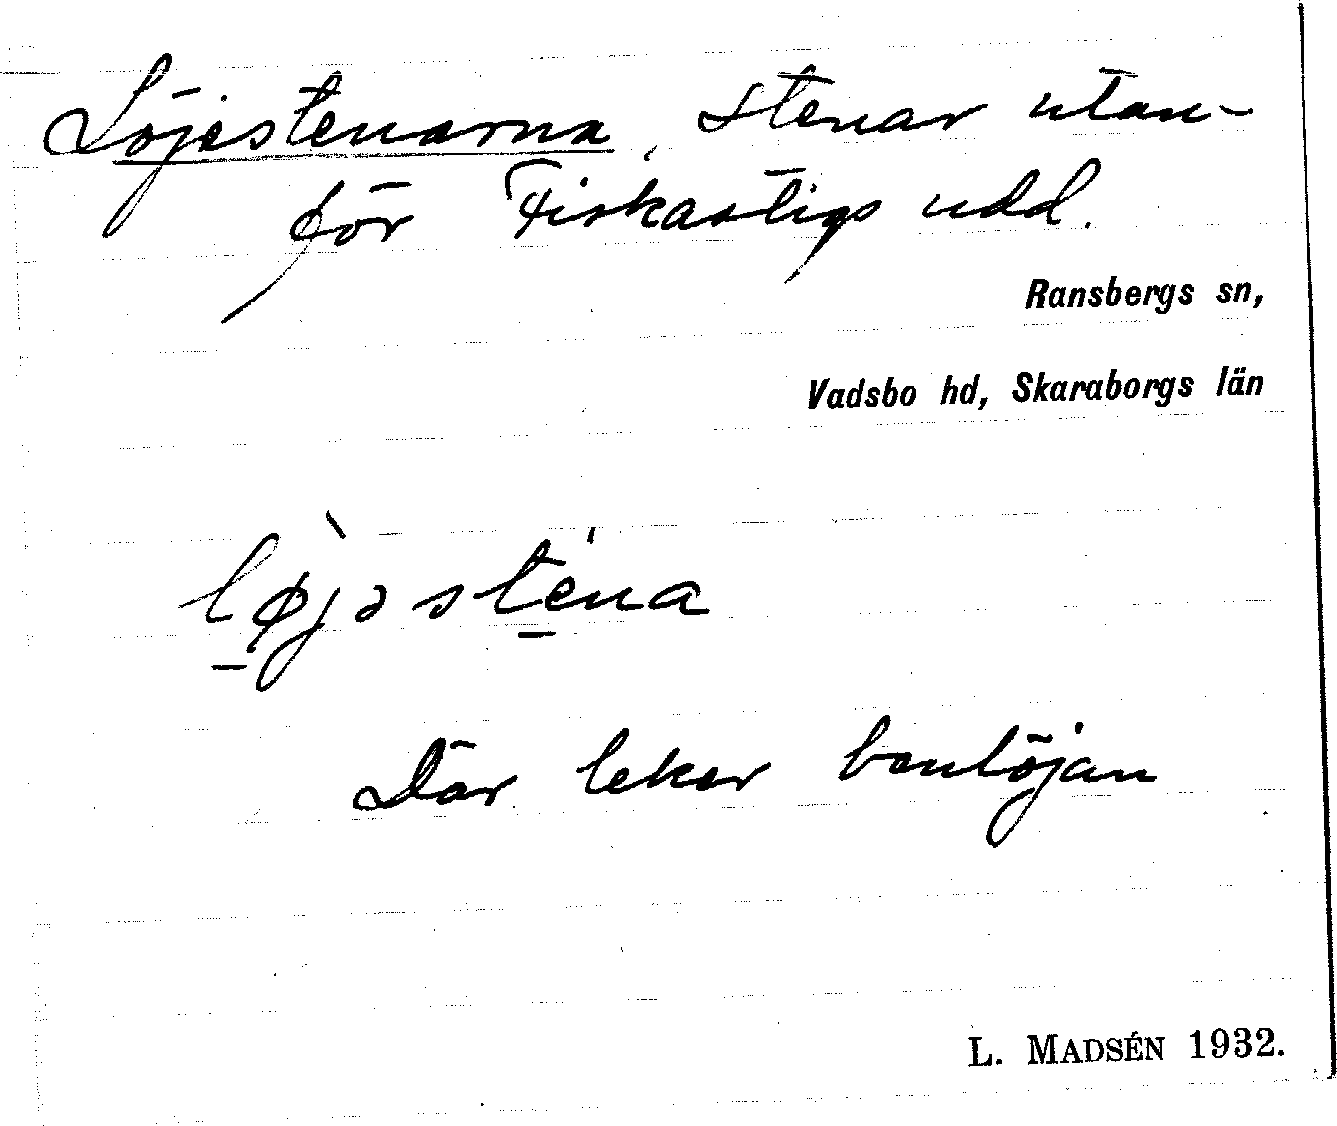 Löjestenarna, stenar utan-
för Fiskastigs udd.
Ransbergs sn,
Vadsbo hd, Skaraborgs län
lø̀jəsténa
Där leker benlöjan
L. MADSÉN 1932.